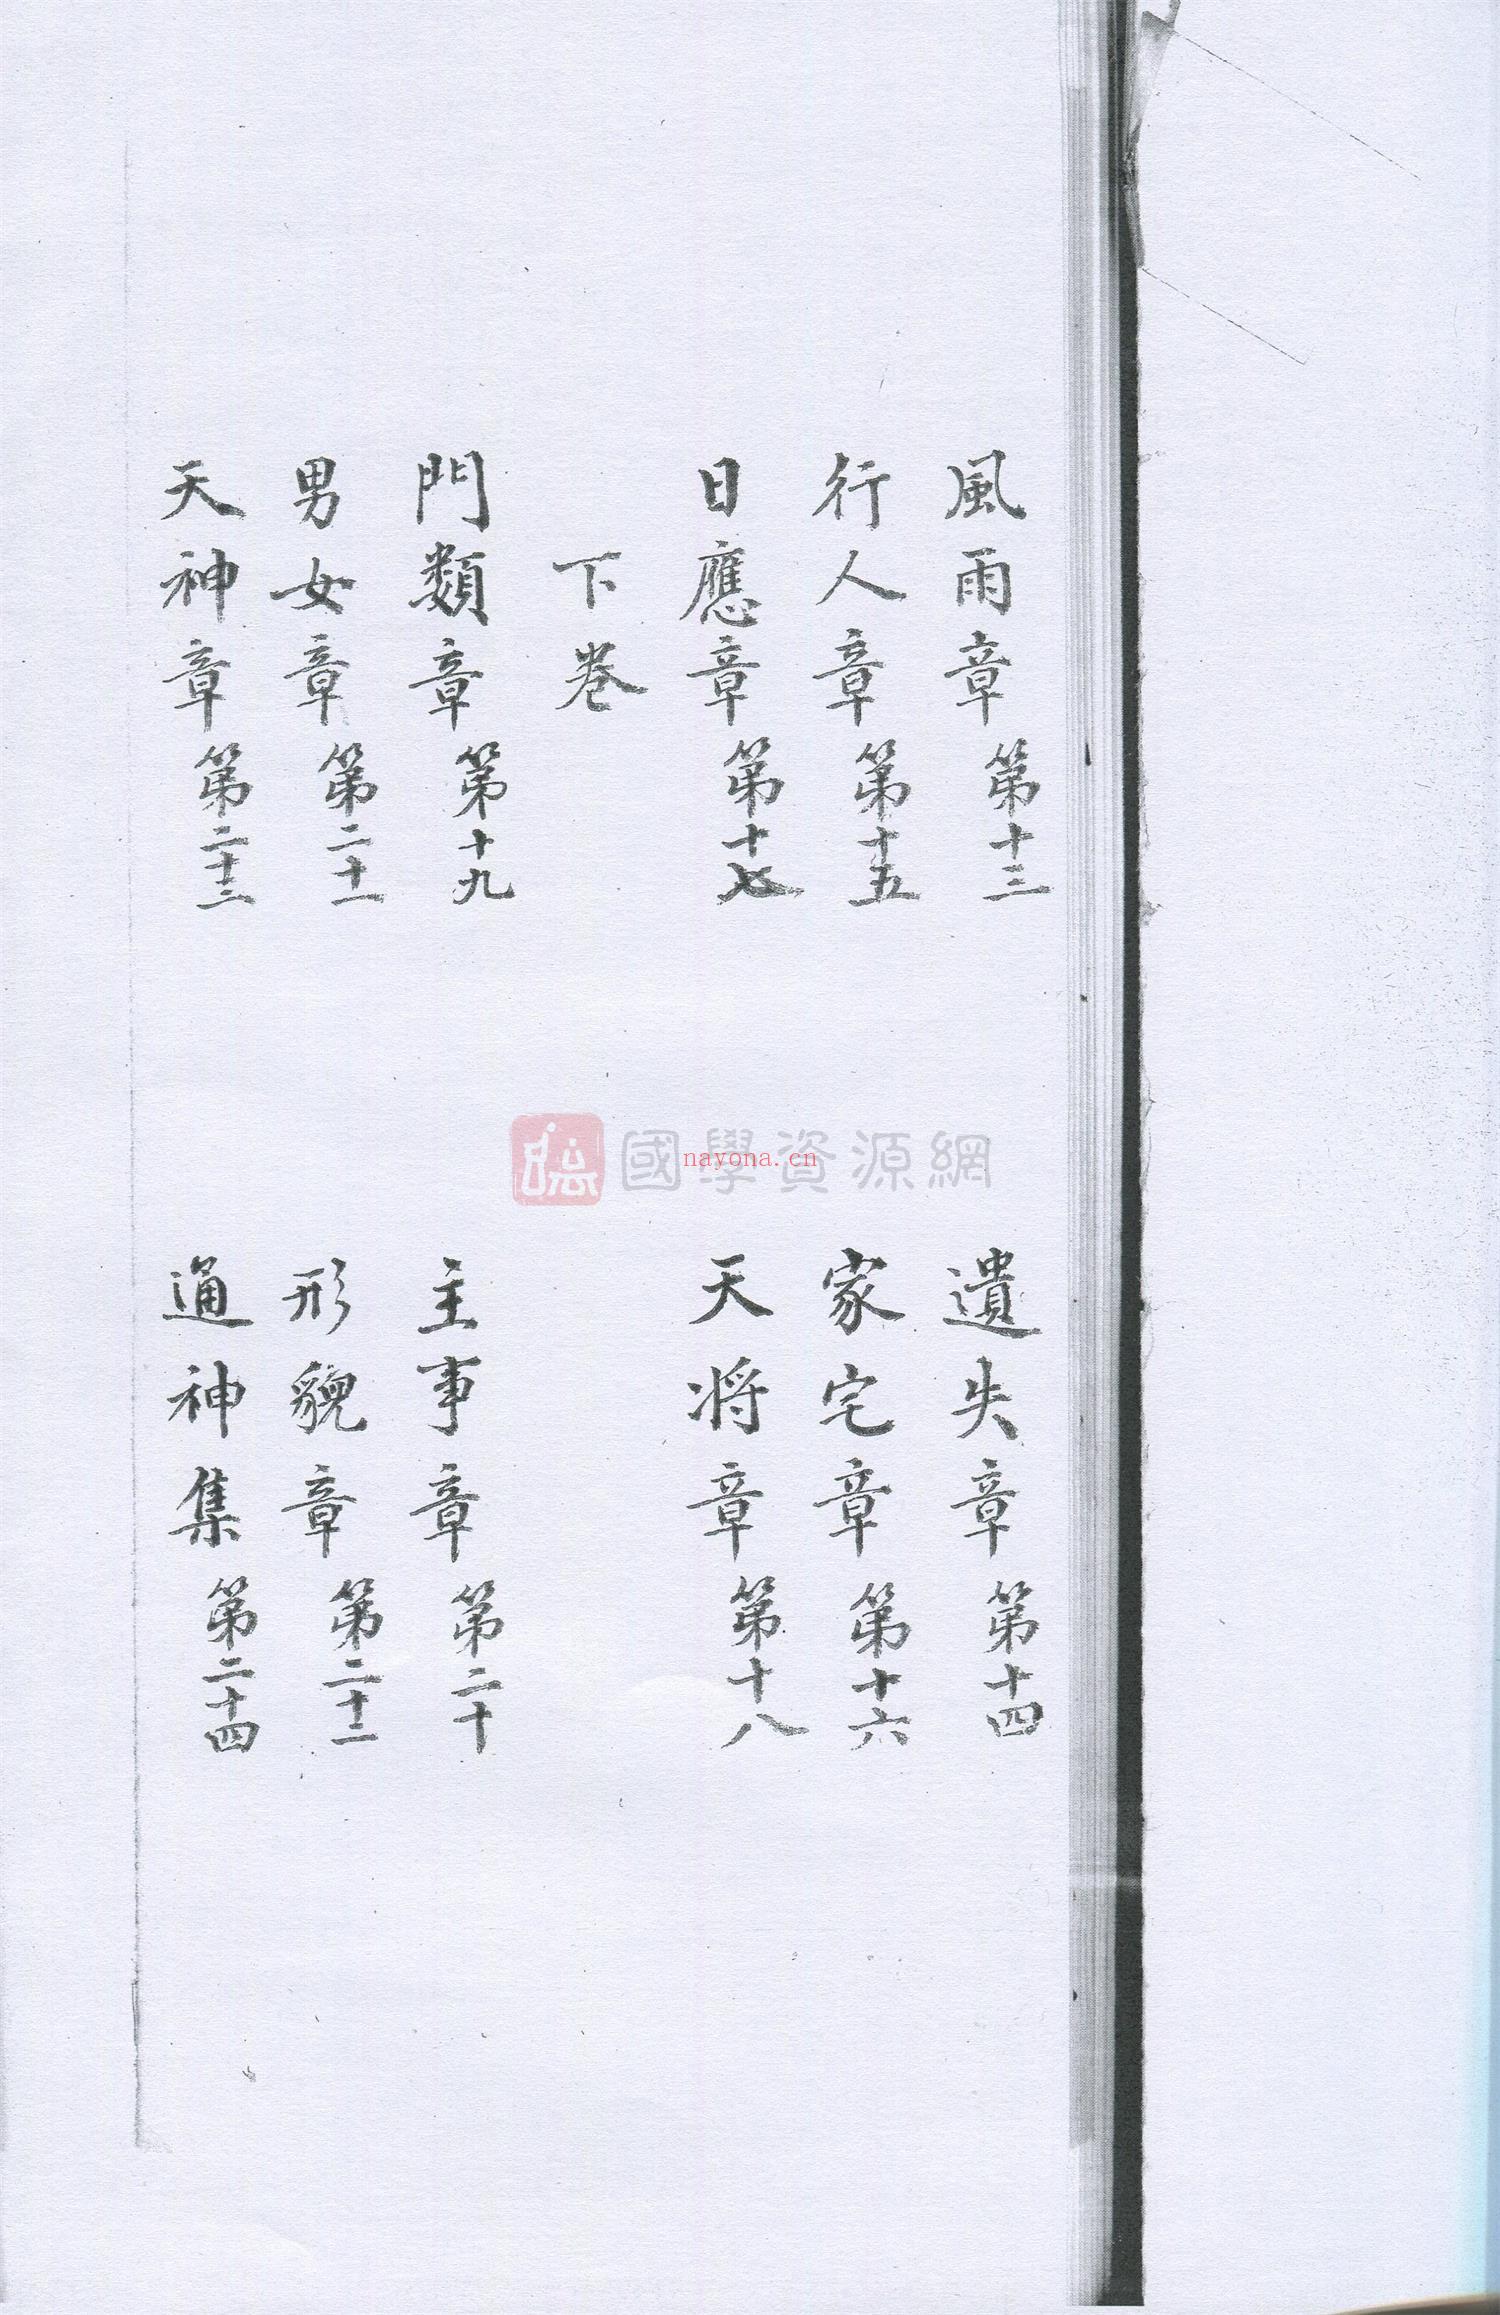 風雨章第十三
遺失章第十四
行人章第十五
家宅章第十六
日應章第十七
天将章第十八
下卷
門類章第十九
主事章第二十
男女章第二十一
形貌章第二十二
天神章第二十三
通神集第二十四
國學資源網
nayona.cn